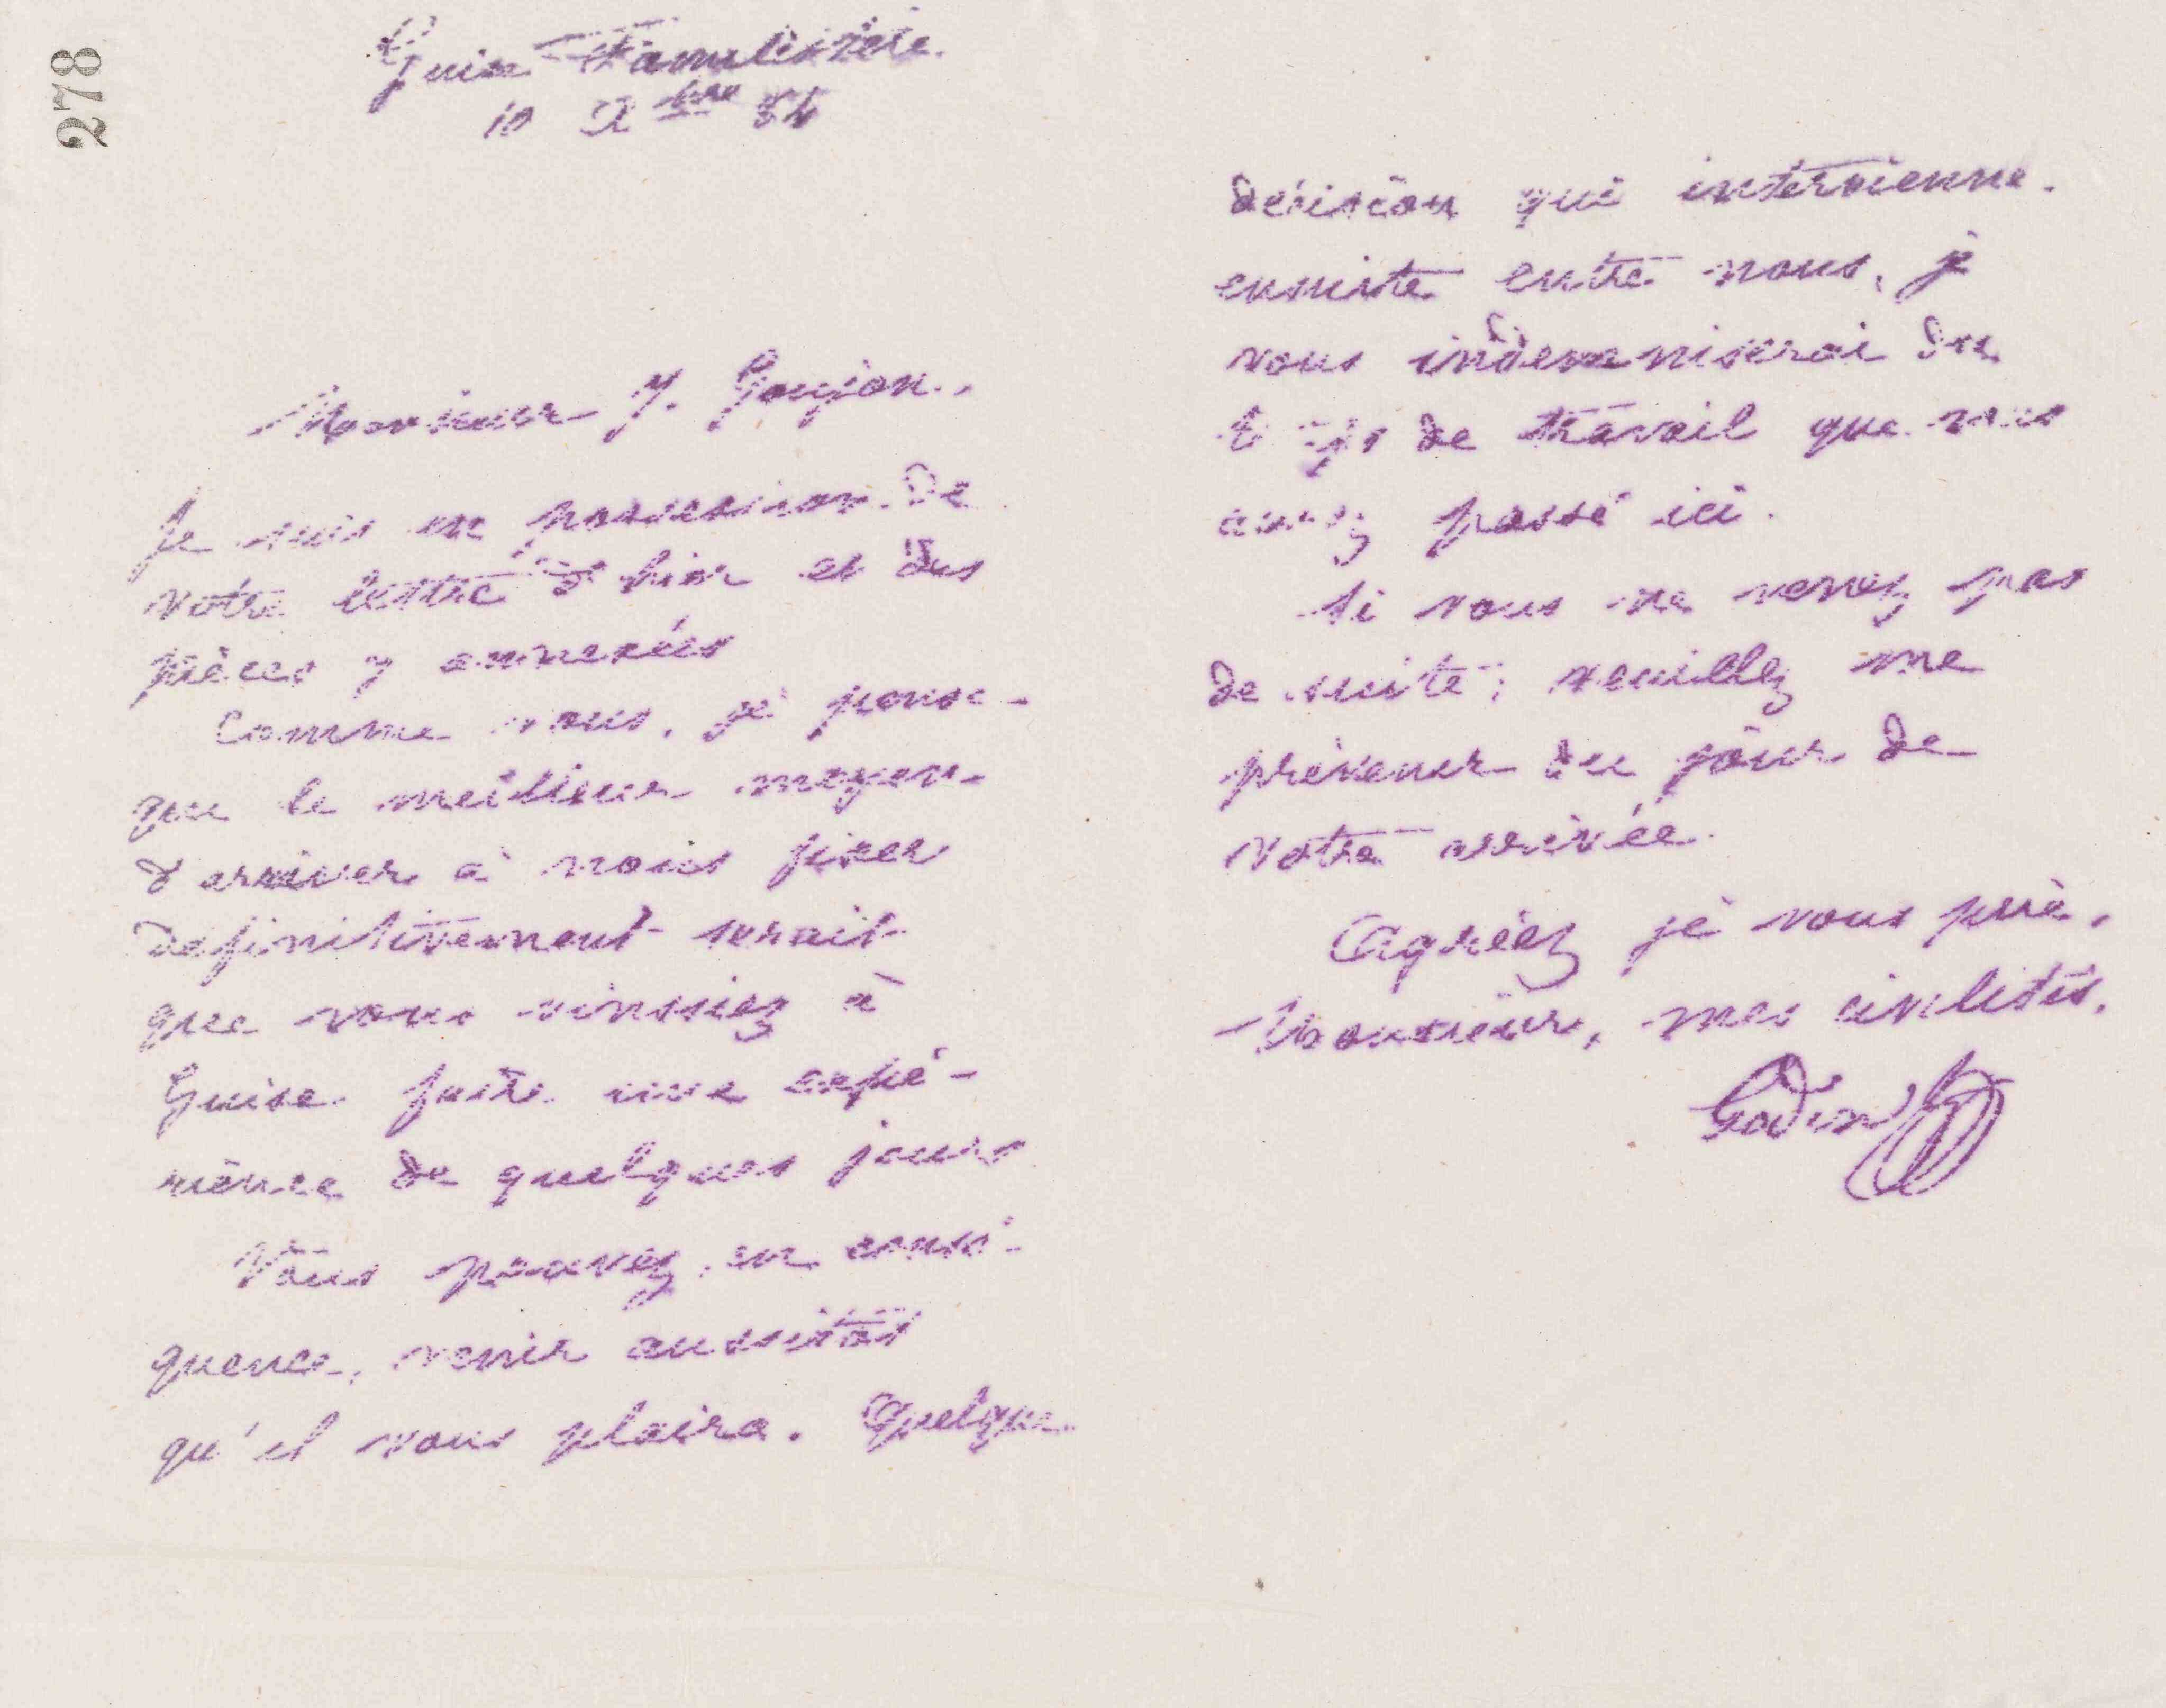 278
Guise Familistère
10 Xbre 84
Monsieur J. Goujon,
Je suis en possession de
votre lettre d'hier et des
pièces y annexées
Comme vous, je pense
que le meilleur moyen
d'arriver à nous fixer
définitivement serait
que vous vinssiez à
Guise faire une expé-
rience de quelques jours
Vous pouvez, en consé-
quence, venir aussitôt
qu'il vous plaira. Quelque
décision qui intervienne
ensuite entre nous, je
vous indemniserai du
temps de travail que vous
aurez passé ici.
Si vous ne venez pas
de suite, veuillez me
prévenir du jour de
votre arrivée.
Agréez je vous prie,
Monsieur, mes civilités.
Godin